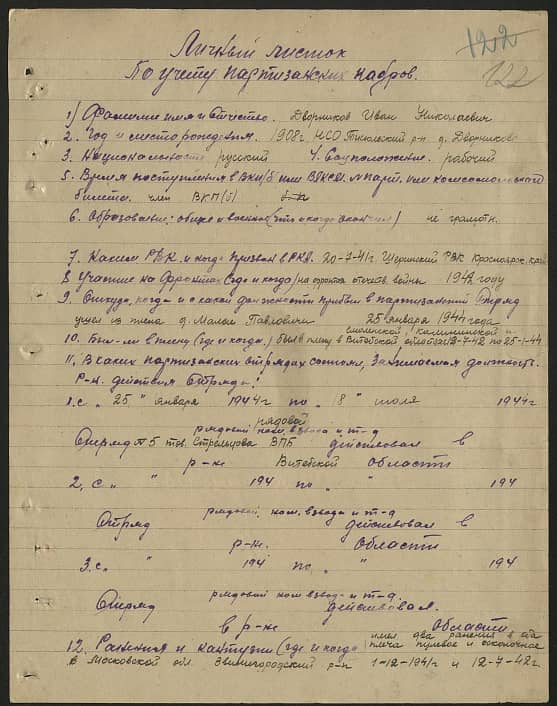 122
122
Личный листок
По учету партизанских кадров.
1) Фамилия имя и отчество. Дворников Иван Николаевич
2. Год и место рождения. 1908г. НСО Тюкюлский р-н д. Дворников
3. Национальность русский 4. Соцположение. рабочий
5. Время поступления в ВКП/б или ВЛКСМ. № парт. или комсомольского
билета. член ВКП(б)
6. Образование: общее и военное (что и когда окончил) не грамотн.
7. Каким РВК и когда призван в РККА. 20-7-41г. РВК Красноярск. края
8. Участие на фронтах (где и когда) на фронтах отечеств. войны 1942 году
9. Откуда, когда и с какой должности прибыл в партизанский отряд
ушел из плена д. Малые Павловичи 25 января 1944 года
смоленской, калининской и
10. Был-ли в плену (где и когда.) был в плену в Витебской областях 12-7-42 по 25-1-44
11. В каких партизанских отрядах состоял, Занимаемая должность.
Р-н. действия отряда:
1. с „ 25 " января 1944г по „ 18 " июля 1944г
рядовой
рядовой ком. взвода и т-д
Отряд № 5 тов. Стрельцова ВПБ действовал в
р-не Витебской области
2. с „ " 194 по „ " 194
рядовой, ком. взвода и т-д
Отряд действовал в
р-не. области
3. с. „ " 194 по „ " 194
рядовой ком взвод- и т-д.
Отряд действовал.
в р-не области
имел два ранения в оба
12. Ранения и контузии (где и когда) плеча пулевое и осколочное
в Московской обл. Звенигородский р-н 1-12-1941г и 12-7-42г.